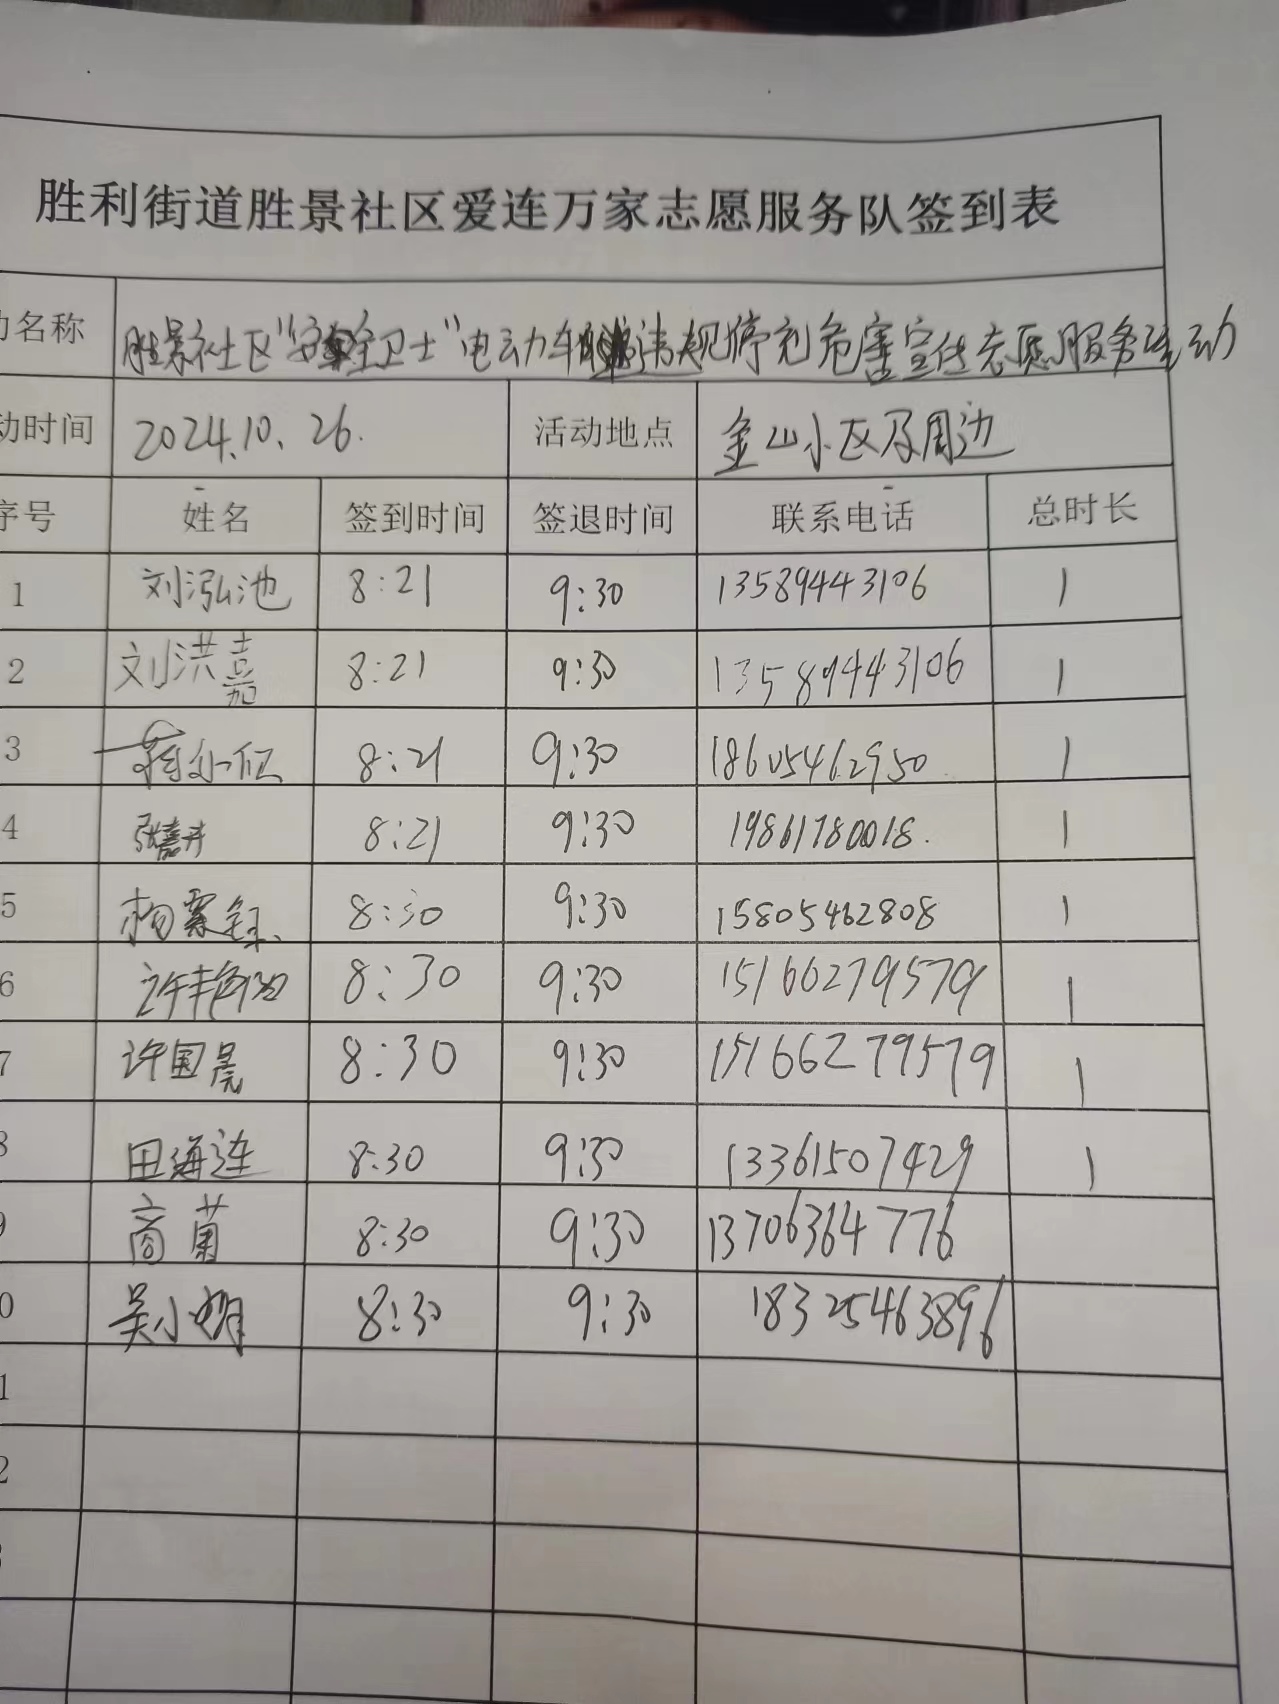 胜利街道胜景社区爱连万家志愿服务队签到表
名称 胜景社区“安全卫士”电动车违规停充危害宣传志愿服务活动
动时间 2024.10.26. 活动地点 金山小区及周边
序号 姓名 签到时间 签退时间 联系电话 总时长
1 刘泓池 8:21 9:30 13589443106 1
2 刘洪嘉 8:21 9:30 13589443106 1
3 8:21 9:30 18605462950 1
4 张嘉卉 8:21 9:30 19861780018. 1
5 杨霖钰 8:30 9:30 15805462808 1
6 许 8:30 9:30 15166279579 1
7 许国晨 8:30 9:30 15166279579 1
8 田海连 8:30 9:30 13361507429 1
9 商菁 8:30 9:30 13706364776
0 吴小娟 8:30 9:30 18325463896
1
2